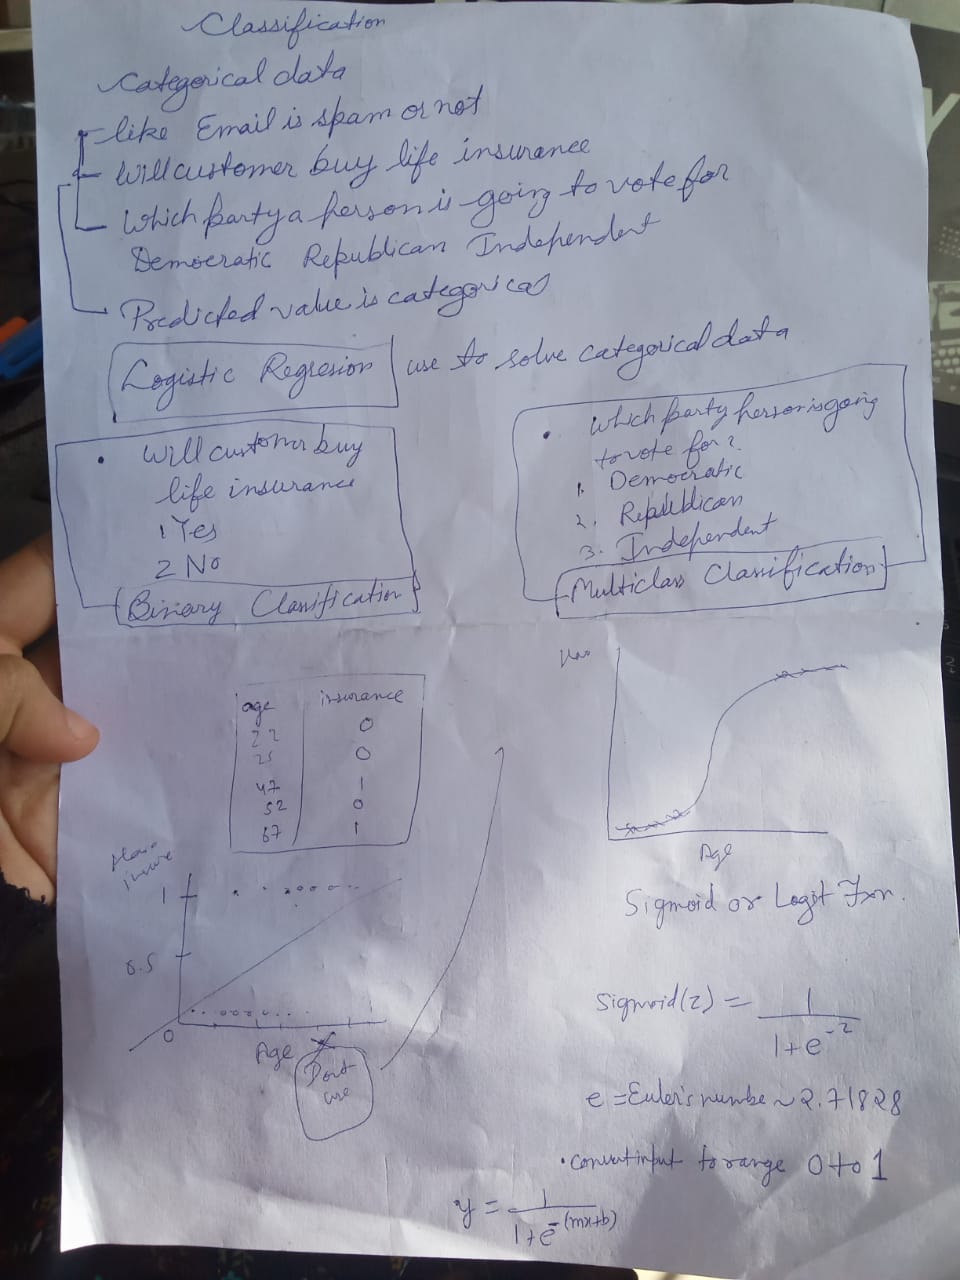 Classification
Categorical data
like Email is spam or not
Will customer buy life insurance
Which party a person is going to vote for
Democratic Republican Independent
Predicted value is categorical
Logistic Regresion use to solve categorical data
• Will customer buy
life insurance
1 Yes
2 No
Binary Classification
• Which party person is going
to vote for?
1. Democratic
2. Republican
3. Independent
Multiclass Classification
age insurance
22 0
25 0
47 1
52 0
67 1
1
0.5
0
Age
Dont
use
Age
Sigmoid or Logit Fxn.
Sigmoid(z) = 1
1+e^-z
e = Euler's numbe ~ 2.71828
• convert input to range 0 to 1
y = 1
1+e^-(mx+b)